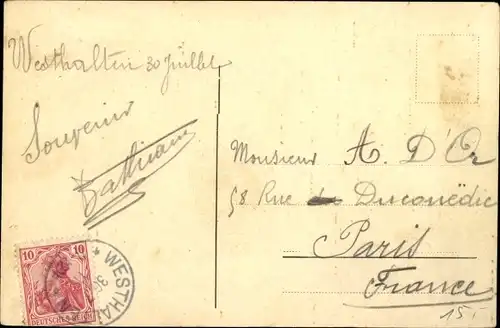 Westhalten 30 Juillet
Souvenir
Monsieur A. D'Or
58 Rue Ducouëdic
Paris
France
10 10
DEUTSCHES REICH
* WESTHA
15.